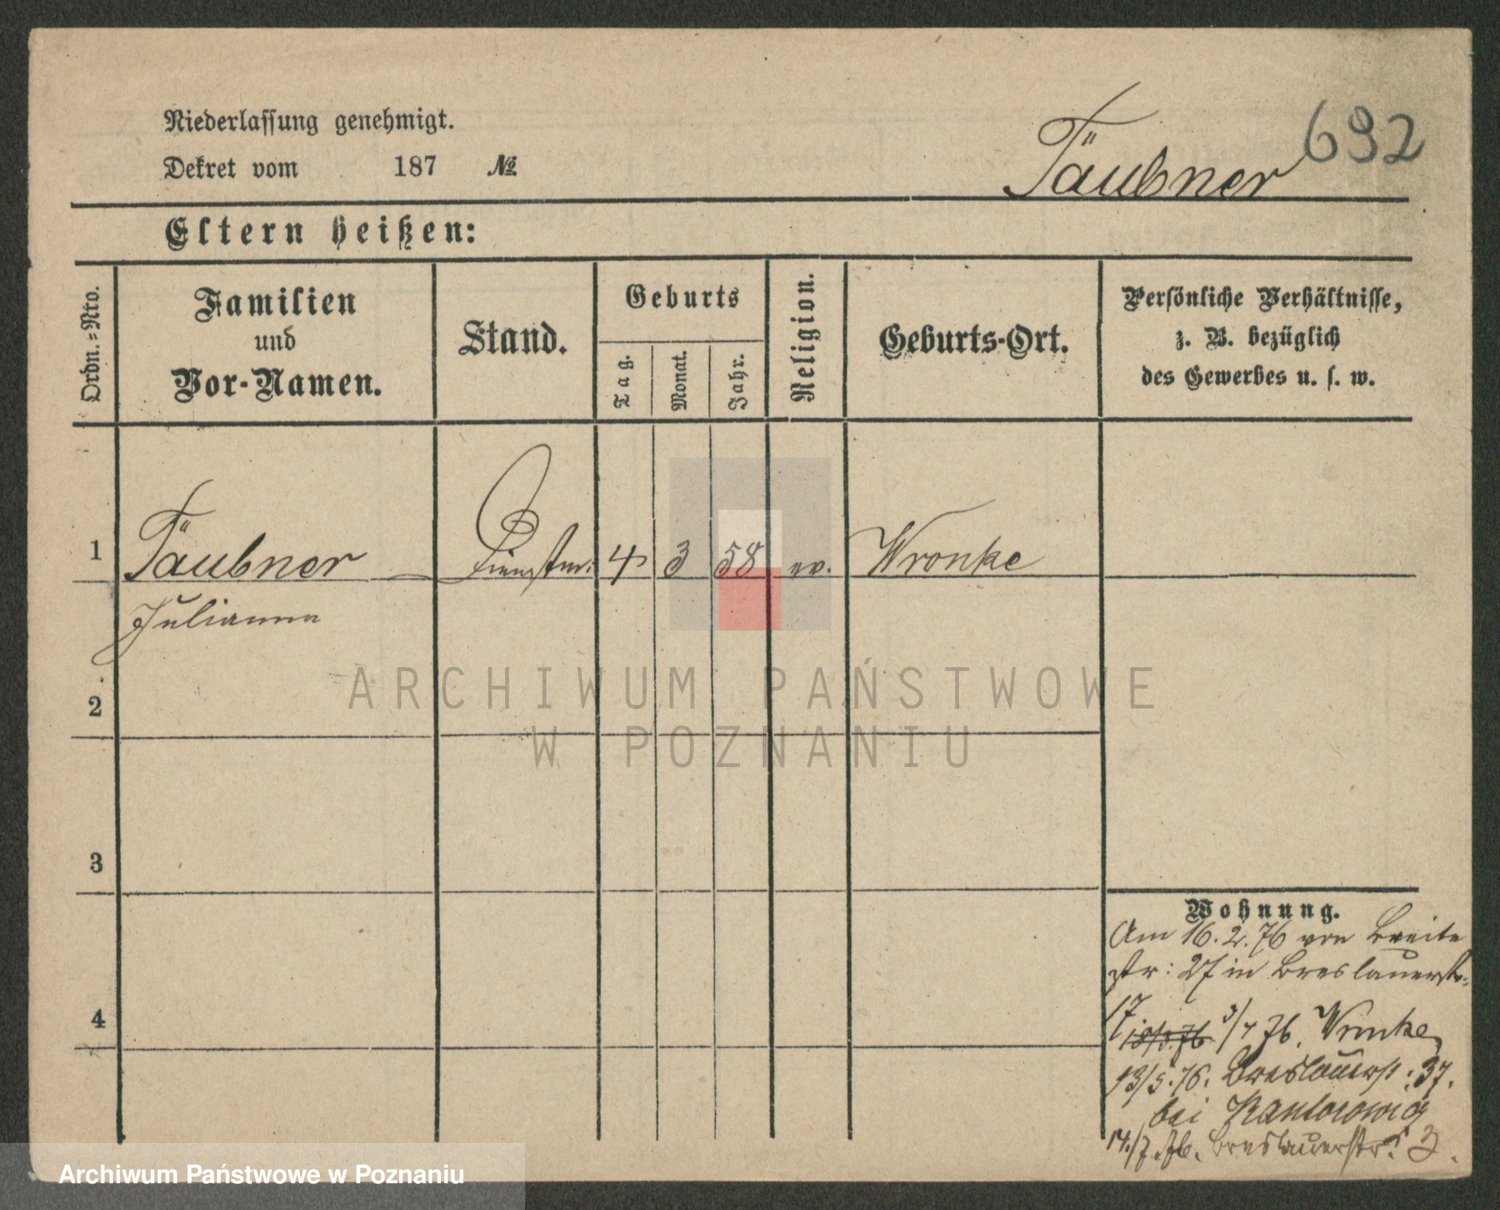 Niederlassung genehmigt.
Dekret vom 187 №
Täubner 692
Eltern heißen:
Ordn.-Nro.
Familien
und
Vor-Namen.
Stand.
Geburts
Tag.
Monat.
Jahr.
Religion.
Geburts-Ort.
Persönliche Verhältnisse,
z. B. bezüglich
des Gewerbes u. s. w.
1 Täubner Dienstm: 4 3 58 ev. Wronke
Julianna
2
3
4
Wohnung.
Am 16.2.76 von Breite
str: 27 in Breslauerstr.
17
3/4 76. Wronke
13/5.76. Breslauerst: 37.
bei
14./7.76. Breslauerstr. 3.
ARCHIWUM PAŃSTWOWE
W POZNANIU
Archiwum Państwowe w Poznaniu